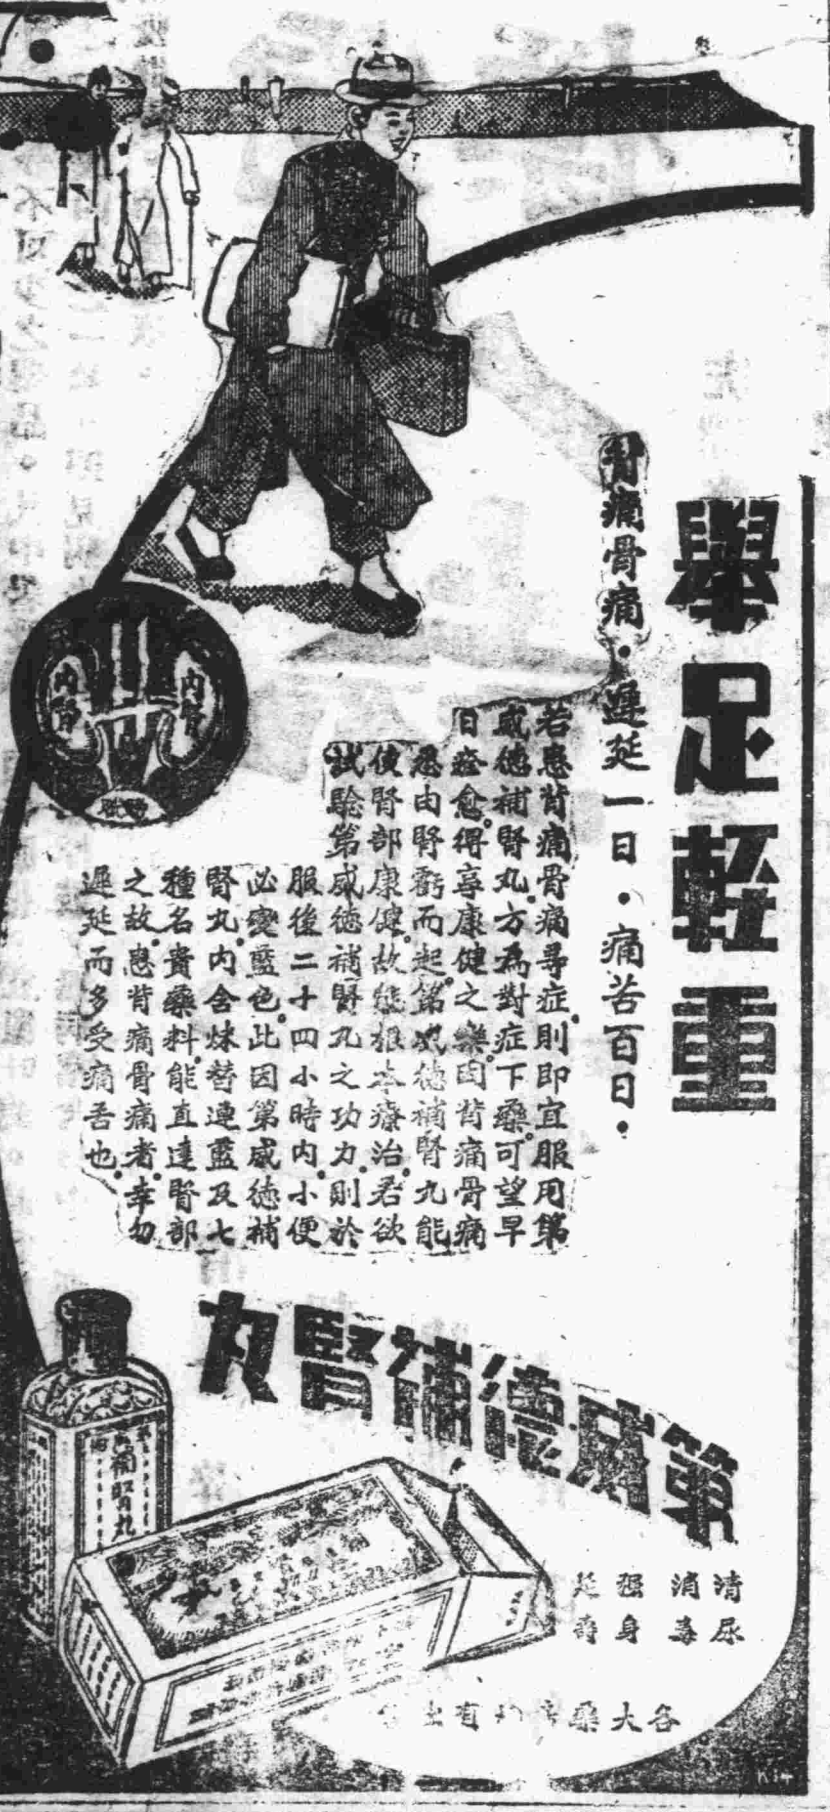 舉足輕重
背痛骨痛·遲延一日·痛苦百日·
若患背痛骨痛等症則即宜服用第
威德補腎丸。方為對症下藥。可望早
日痊愈。得享康健之樂。因背痛骨痛
悉由腎虧而起。第威德補腎丸能
使腎部康健。故能根本療治。君欲
試驗第威德補腎丸之功力。則於
服後二十四小時內。小便
必變藍色。此因第威德補
腎丸。內含妹替連藍及七
種名貴藥料。能直達腎部
之故。患背痛骨痛者。幸勿
遲延而多受痛苦也。
內腎
內腎
膀胱
第威德補腎丸
補腎丸
清尿
消毒
强身
延壽
各大藥房均有出售
K14